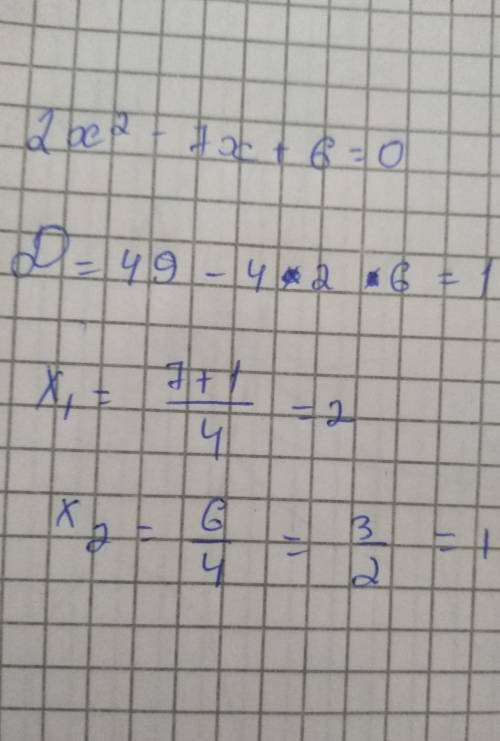 2x² - 7x + 6 = 0
D = 49 - 4 * 2 * 6 = 1
x₁ = (7+1)/4 = 2
x₂ = 6/4 = 3/2 = 1